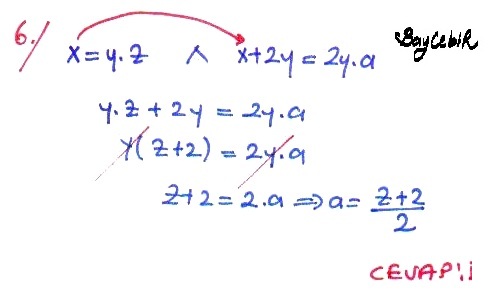 6./ x = y.z ∧ x+2y = 2y.a BayCebiR
y.z + 2y = 2y.a
y(z+2) = 2y.a
z+2 = 2.a ⇒ a = z+2/2
CEVAP: